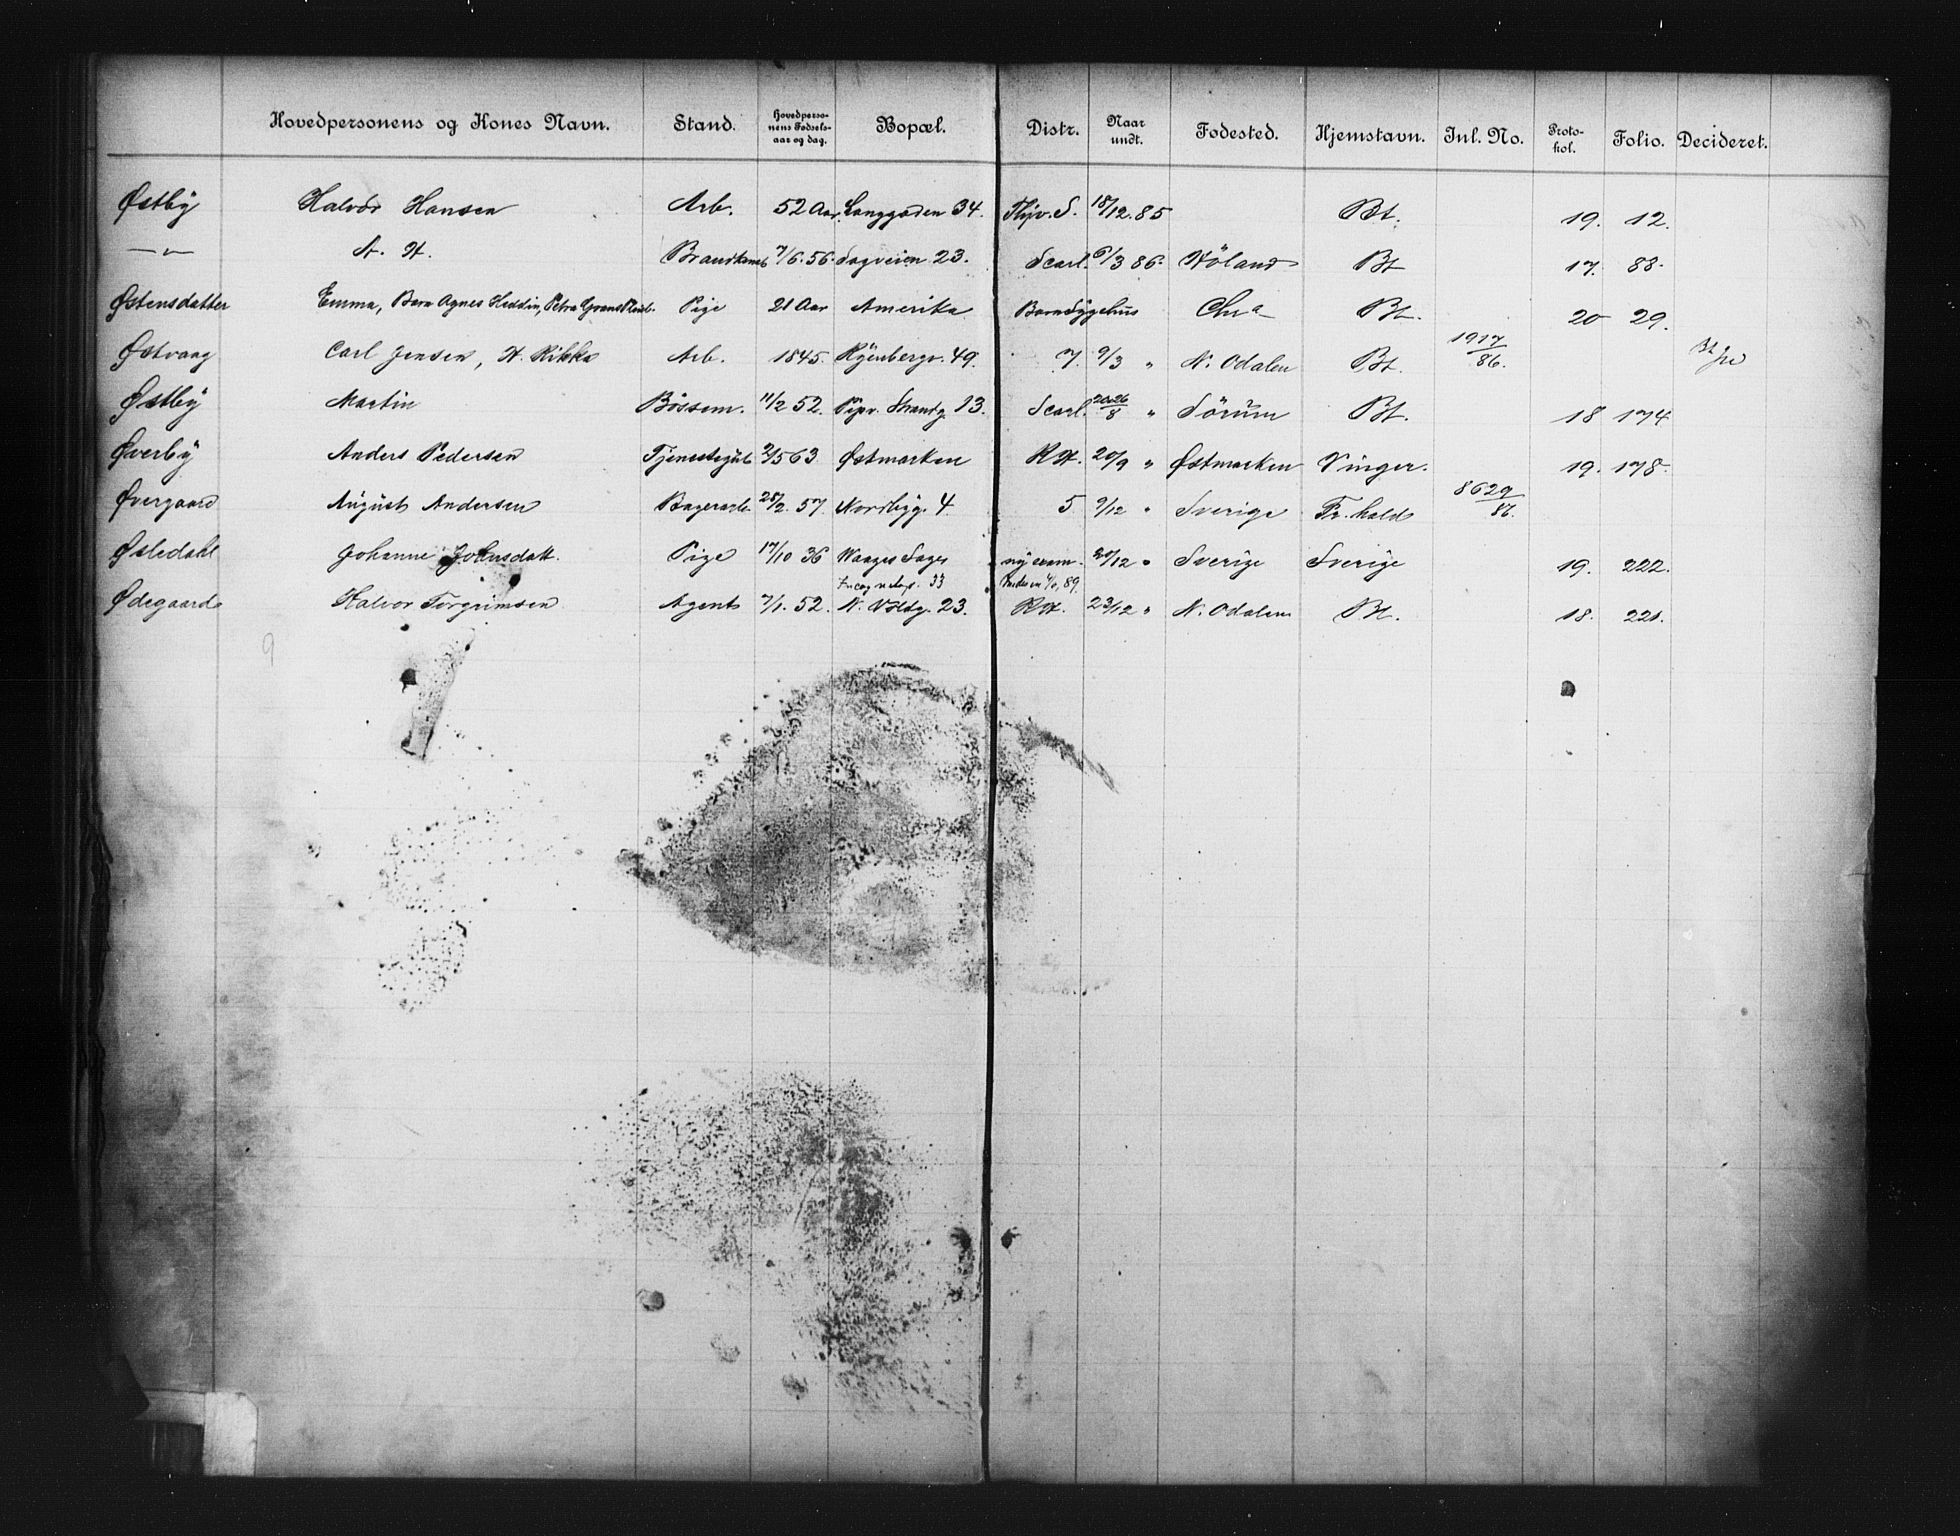 Hovedpersonens og Kones Navn. Stand. Hovedpersonens Fødselsaar og dag. Bopæl. Distr. Naar undt. Fødested. Hjemstavn. Inl. No. Protokol. Folio. Decideret.
Østby Halvor Hansen Arb. 52 Aar. Langgaden 34. 18/12. 85 Bt. 19. 12.
—"— A. H. 7/6. 56. Sagveien 23. Scarl. 6/3 86. Höland Bt 17. 88.
Østensdatter Emma, Barn Agnes Heddin, Petra Pige 21 Aar Amerika Barn Sygehus Chr a Bt. 20 29.
Østvang Carl Jensen, H. Rikka Arb. 1845. Ryenbergv. 49. 7. 9/3 " N. Odalen Bt. 1917/86.
Østby Martin Bössem. 11/2 52. Pipv. Strandg. 13. Scarl. " Sörum Bt. 18 174
Øverby Anders Pedersen 63 Østmarken RH. 20/9 " Østmarken Vinger. 19. 178.
Øvergaard August Andersen Bagerarb. 28/2. 57. Nordbyg. 4 5 9/12 " Sverige Fr.hald 8629/86.
Johanne Johnsdatt. Pige 17/10 36 Waages Sages 20/12 " Sverige Sverige 19. 222.
33 89.
Ødegaard Halvor Torgrimsen Agent 7/1. 52. N. Voldg. 23. RH. 23/12 " N. Odalen Bt. 18. 221.
9